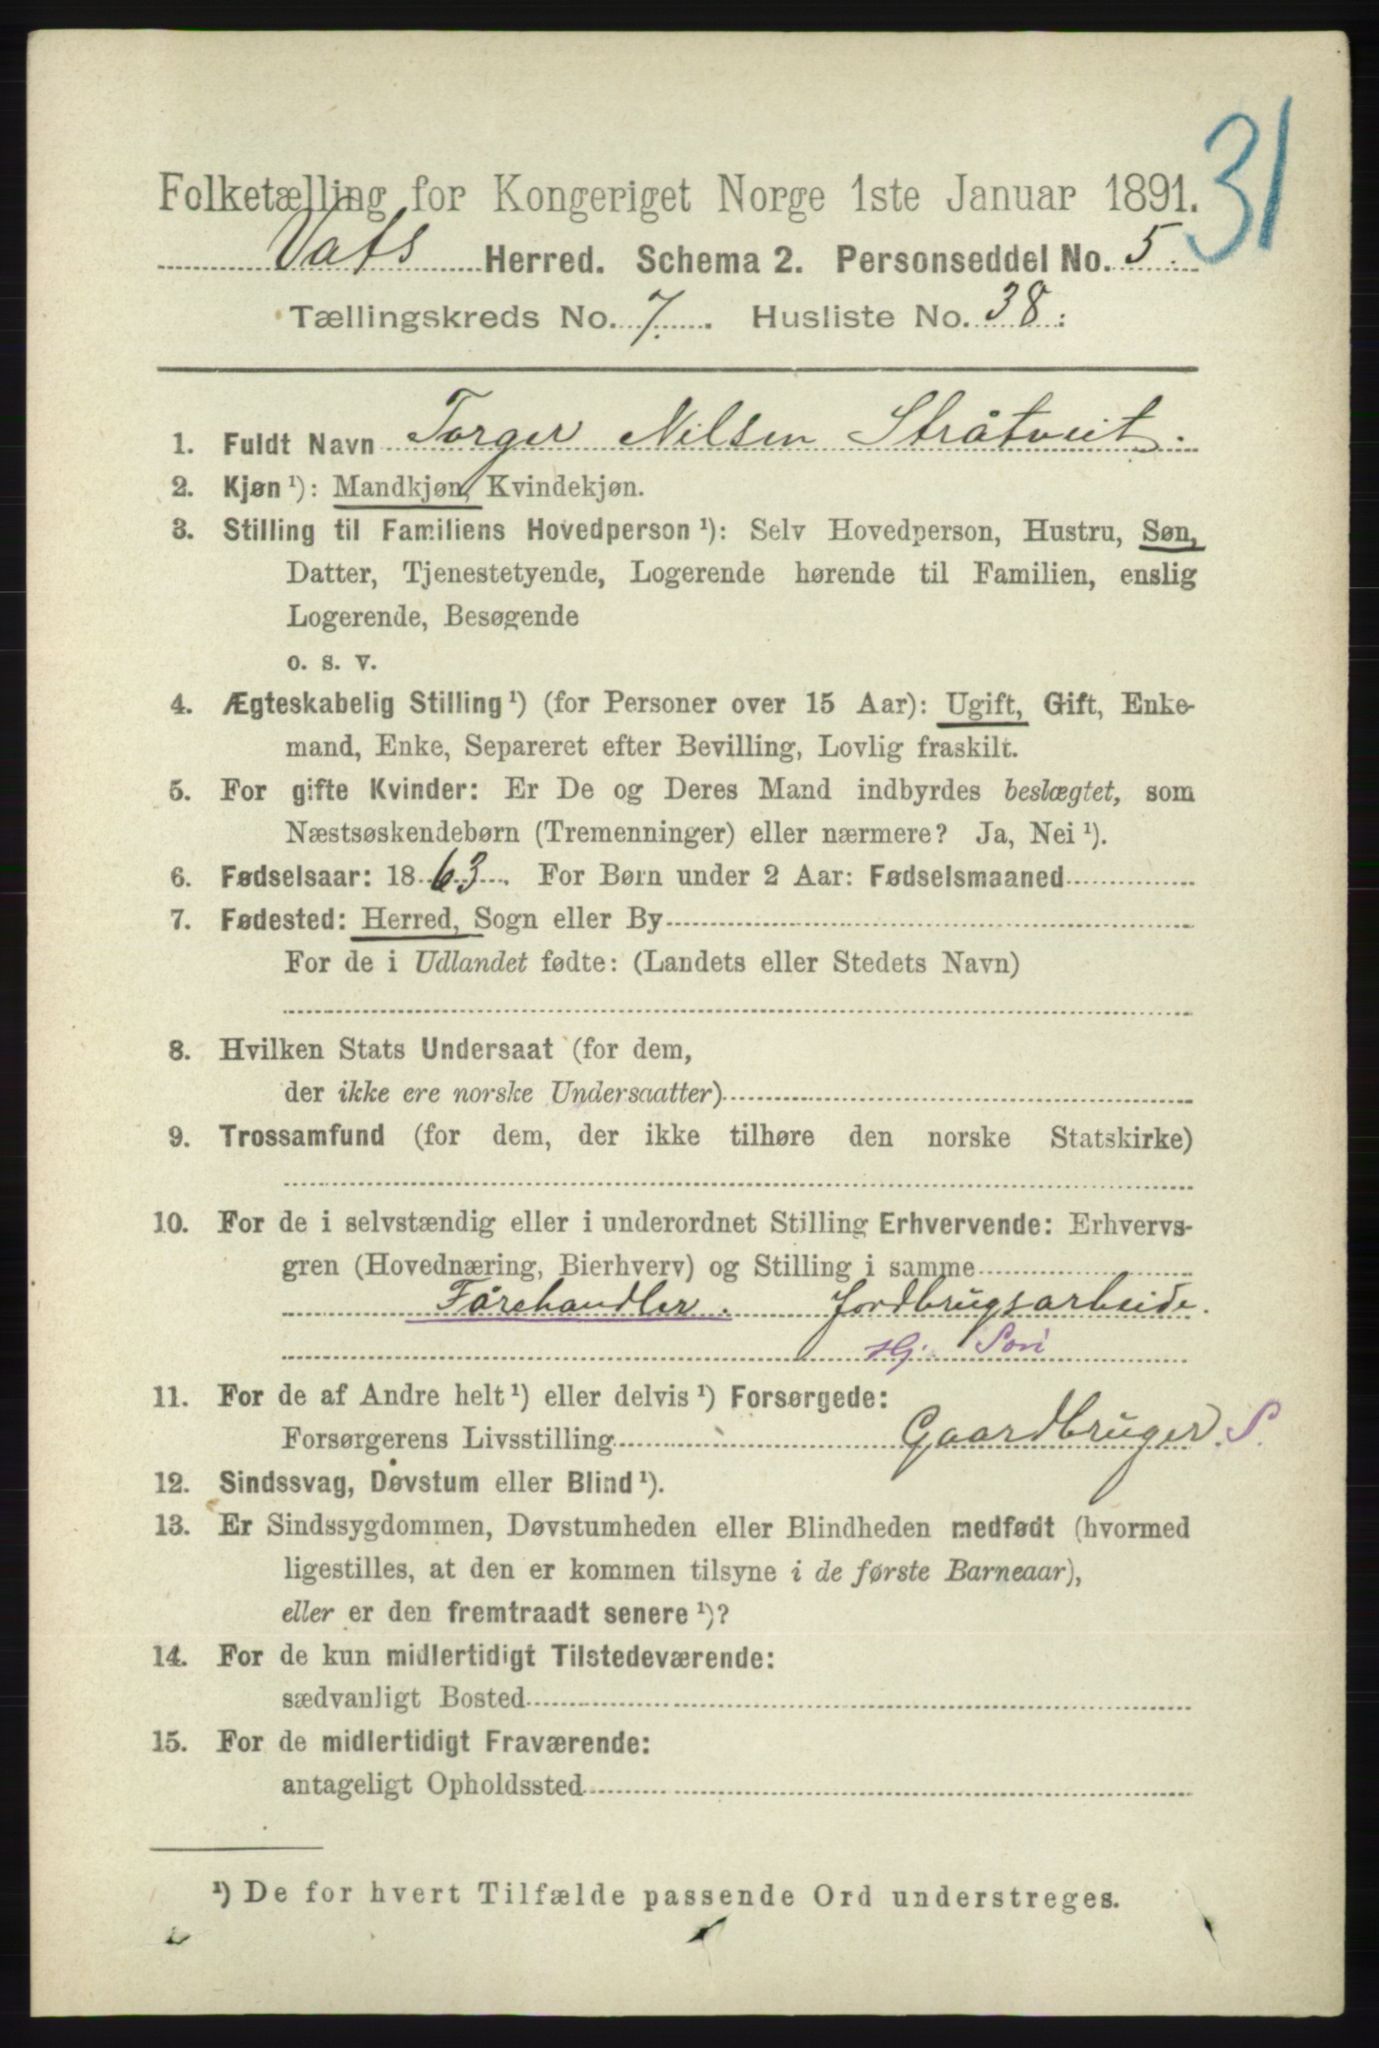 31
Folketælling for Kongeriget Norge 1ste Januar 1891.
Vats Herred. Schema 2. Personseddel No. 5.
Tællingskreds No. 7. Husliste No. 38.
1. Fuldt Navn Torger Nilsen Stråtveit.
2. Kjøn ¹): Mandkjøn, Kvindekjøn.
3. Stilling til Familiens Hovedperson ¹): Selv Hovedperson, Hustru, Søn,
Datter, Tjenestetyende, Logerende hørende til Familien, enslig
Logerende, Besøgende
o. s. v.
4. Ægteskabelig Stilling ¹) (for Personer over 15 Aar): Ugift, Gift, Enke-
mand, Enke, Separeret efter Bevilling, Lovlig fraskilt.
5. For gifte Kvinder: Er De og Deres Mand indbyrdes beslægtet, som
Næstsøskendebørn (Tremenninger) eller nærmere? Ja, Nei ¹).
6. Fødselsaar: 1863. For Børn under 2 Aar: Fødselsmaaned
7. Fødested: Herred, Sogn eller By
For de i Udlandet fødte: (Landets eller Stedets Navn)
8. Hvilken Stats Undersaat (for dem,
der ikke ere norske Undersaatter)
9. Trossamfund (for dem, der ikke tilhøre den norske Statskirke)
10. For de i selvstændig eller i underordnet Stilling Erhvervende: Erhvervs-
gren (Hovednæring, Bierhverv) og Stilling i samme
Fårehandler. Jordbrugsarbeide.
Hj. Søn
11. For de af Andre helt ¹) eller delvis ¹) Forsørgede:
Forsørgerens Livsstilling Gaardbruger. S.
12. Sindssvag, Døvstum eller Blind ¹).
13. Er Sindssygdommen, Døvstumheden eller Blindheden medfødt (hvormed
ligestilles, at den er kommen tilsyne i de første Barneaar),
eller er den fremtraadt senere ¹)?
14. For de kun midlertidigt Tilstedeværende:
sædvanligt Bosted
15. For de midlertidigt Fraværende:
antageligt Opholdssted
¹) De for hvert Tilfælde passende Ord understreges.